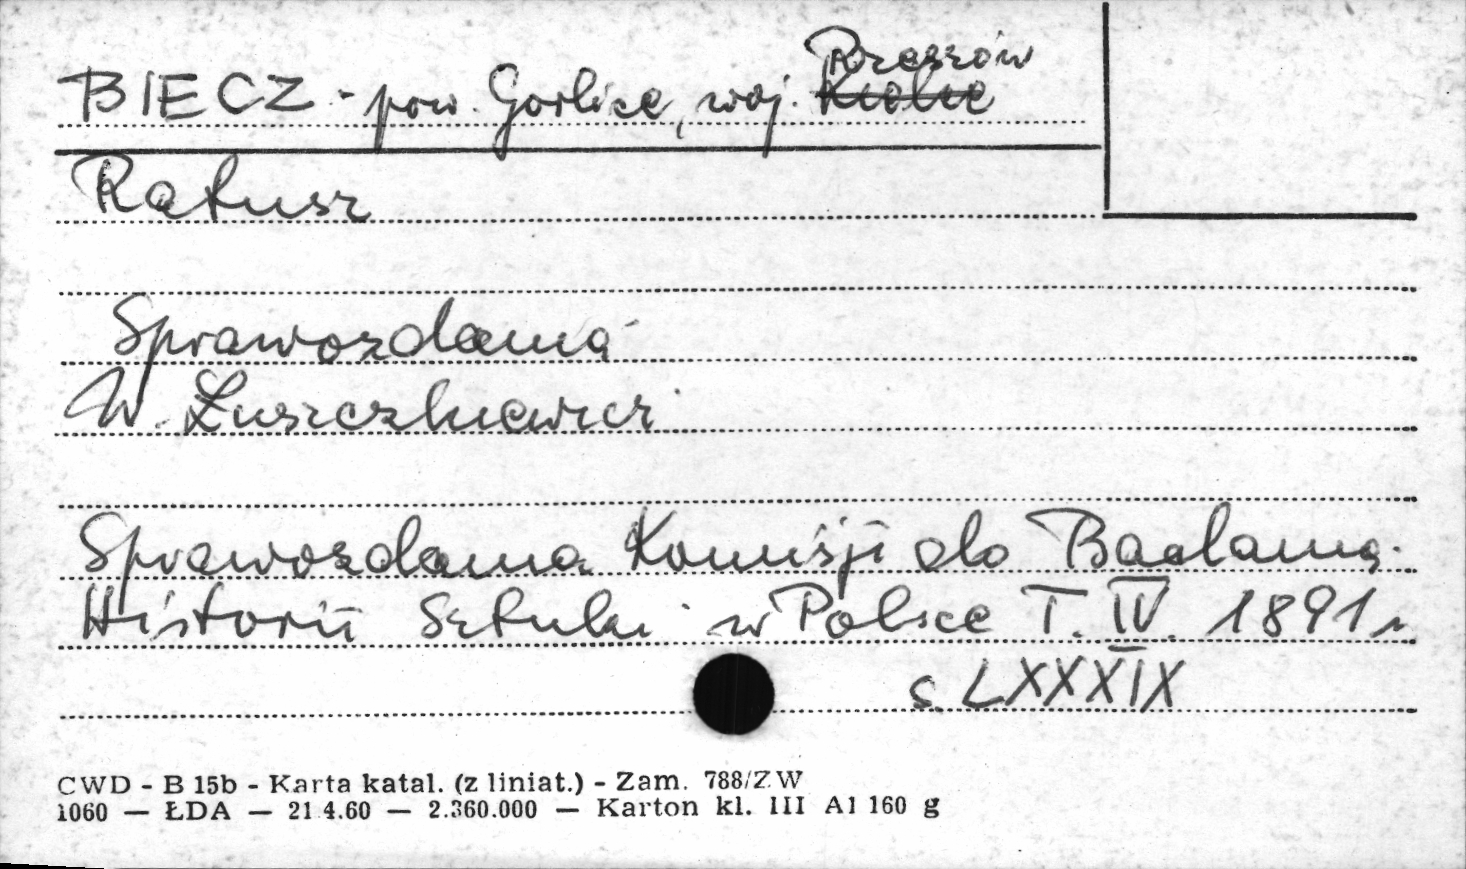 BIECZ - pow. Gorlice, woj. Kielce Rzeszów
Ratusz
Sprawozdania
W. Łuszczkiewicz
Sprawozdania Komisji do Badania
Historii Sztuki w Polsce T. IV. 1891 r.
s. LXXXIX
CWD - B 15b - Karta katal. (z liniat.) - Zam. 788/ZW
1060 — ŁDA — 21.4.60 — 2.360.000 — Karton kl. III A1 160 g